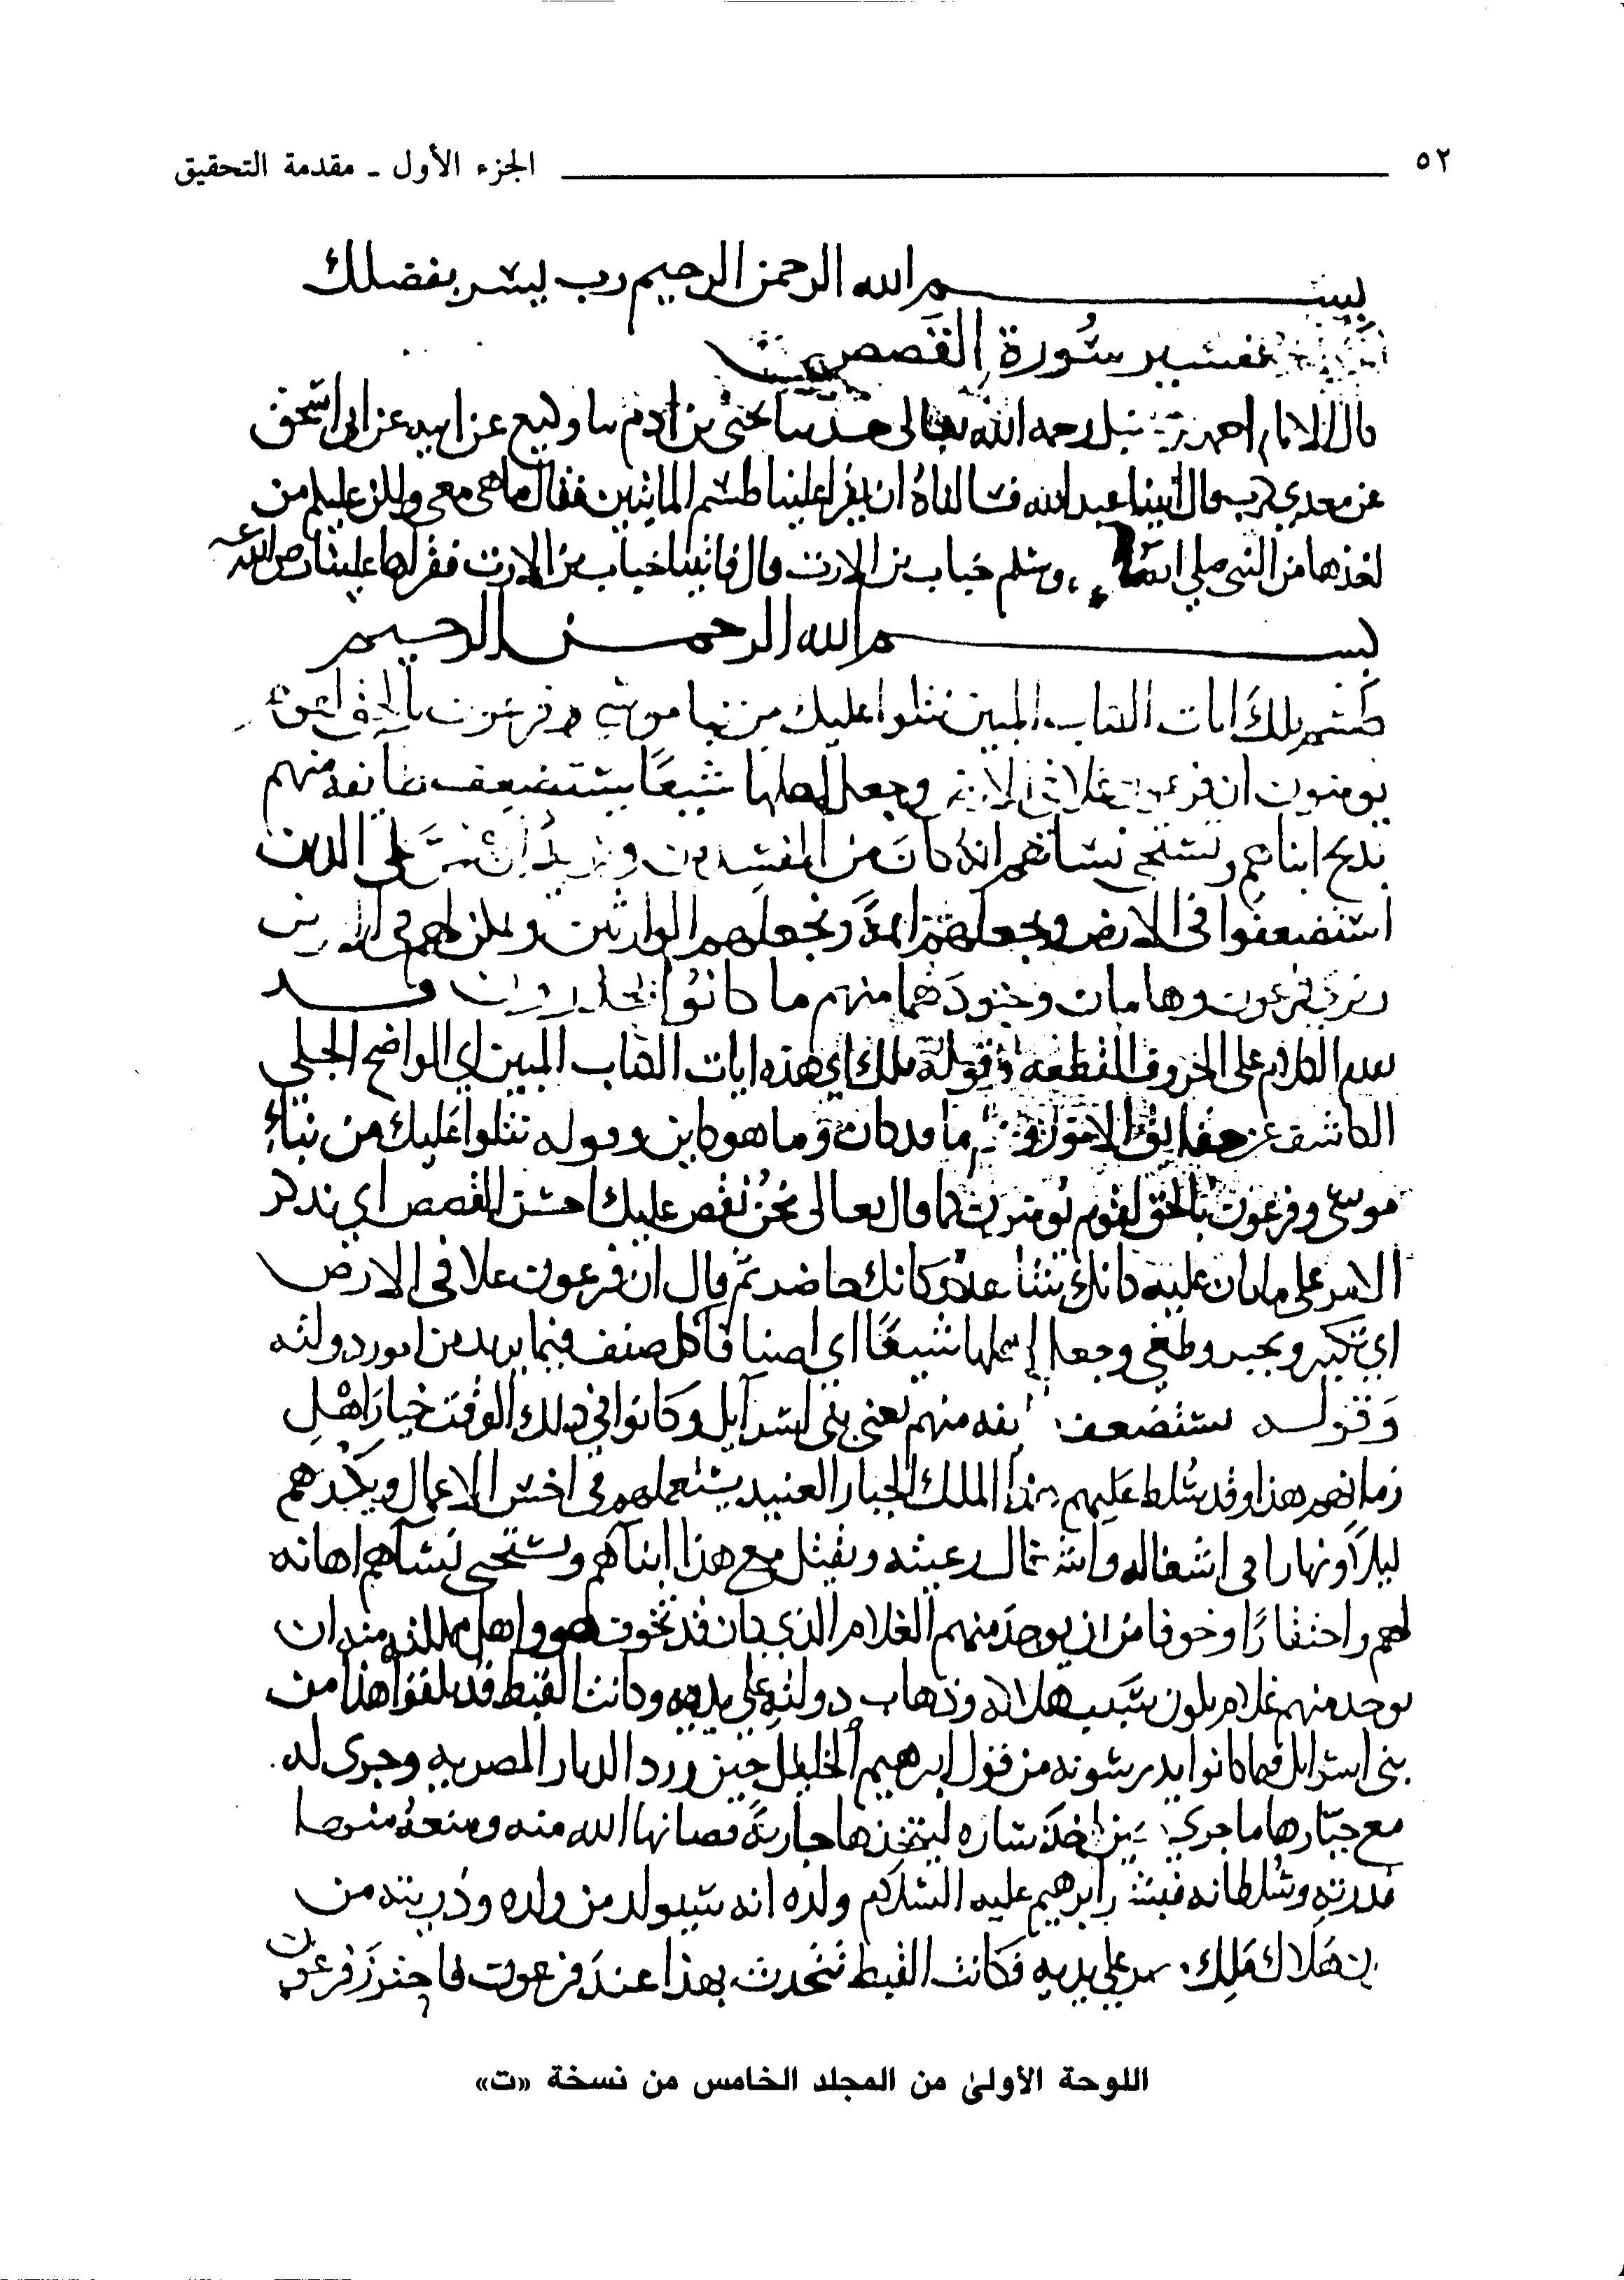 ٥٢ الجزء الأول ـ مقدمة التحقيق
بسم الله الرحمن الرحيم رب يسر بفضلك
تفسير سورة القصص
قال الامام احمد بن حنبل رحمه الله تعالى حدثنا يحيى بن ادم سا وكيع عن ابيه عن ابي اسحق
عن معدي كرب قال اتينا عبد الله فسالناه ان يقرا علينا طسم المايتين فقال ما هي معي ولكن عليكم من
اخذها من النبي صلى الله وسلم خباب بن الارت قال فاتينا خباب بن الارت فقراها علينا رضى الله عنه
بسم الله الرحمن الرحيم
طسم تلك ايات الكتاب المبين نتلوا عليك من نبا موسى وفرعون بالحق لقوم
يومنون ان فرعون علا في الارض وجعل اهلها شيعًا يستضعف طائفة منهم
يذبح ابناهم ويستحي نساهم انه كان من المفسدين ونريد ان نمن على الذين
استضعفوا في الارض ونجعلهم ايمةً ونجعلهم الوارثين ونمكن لهم في الارض
ونري فرعون وهامان وجنودهما منهم ما كانوا يحذرون قد
تقدم الكلام على الحروف المقطعه وقوله تلك اي هذه ايات الكتاب المبين اي الواضح الجلي
الكاشف عن حقايق الامور ما قد كان وما هو كاين وقوله نتلوا عليك من نباء
موسى وفرعون بالحق لقوم يومنون كما قال تعالى نحن نقص عليك احسن القصص اي نذكر
الامر على ما كان عليه كانك تشاهد وكانك حاضر ثم قال ان فرعون علا في الارض
اي تكبر وتجبر وطغى وجعل اهلها شيعًا اي اصنافا كل صنف فيما يريد من امور دولته
وقوله يستضعف طايفه منهم يعني بني اسرآيل وكانوا في ذلك الوقت خيار اهل
زمانهم هذا وقد سلط عليهم هذا الملك الجبار العنيد يستعملهم في اخس الاعمال ويكدهم
ليلاً ونهارا في اشغاله واشغال رعيته ويقتل مع هذا ابنآهم ويستحيي نسآهم اهانه
لهم واحتقارًا وخوفا من ان يوجد منهم الغلام الذي كان قد تخوف هو واهل مملكته منه ان
يوجد منهم غلام يكون سبب هلاكه وذهاب دولته على يديه وكانت القبط قد تلقوا هذا من
بني اسرايل فيما كانوا يدرسونه من قول ابرهيم الخليل حين ورد الديار المصريه وجرى له
مع جبارها ما جرى حين اخذ ساره ليتخذها جاريةً فصانها الله منه ومنعه منها
بقدرته وسلطانه فبشر ابرهيم عليه السلام ولده انه سيولد من ولده وذريته من
يكون هلاك ملك مصر على يديه فكانت القبط تتحدث بهذا عند فرعون فاحترز فرعون
اللوحة الأولىٰ من المجلد الخامس من نسخة «ت»